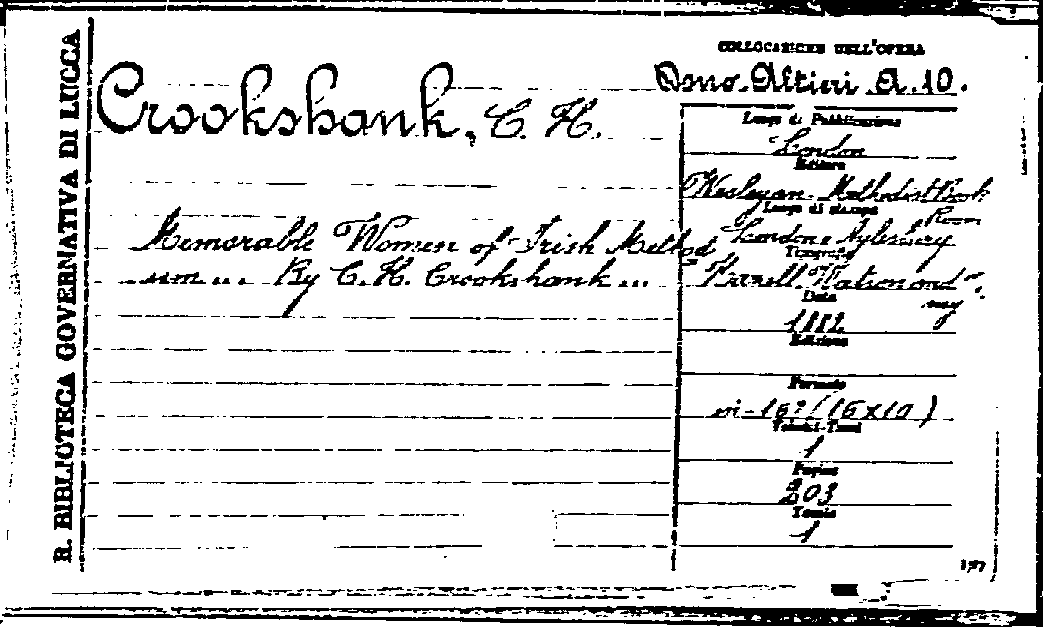 R. BIBLIOTECA GOVERNATIVA DI LUCCA
Crookshank, C. H.
Memorable Women of Irish Method
ism ... By C. H. Crookshank ...
COLLOCAZIONE DELL'OPERA
Altieri A. 10.
Luogo di Pubblicazione
London
Editore
Wesleyan Methodist Book
Room
Luogo di stampa
London e Aylesbury
Tipografia
Hazell, Watson and
Data
1882
Edizione
Formato
in-16° (16x10)
Volumi-Tomi
1
Pagine
203
Tomis
1